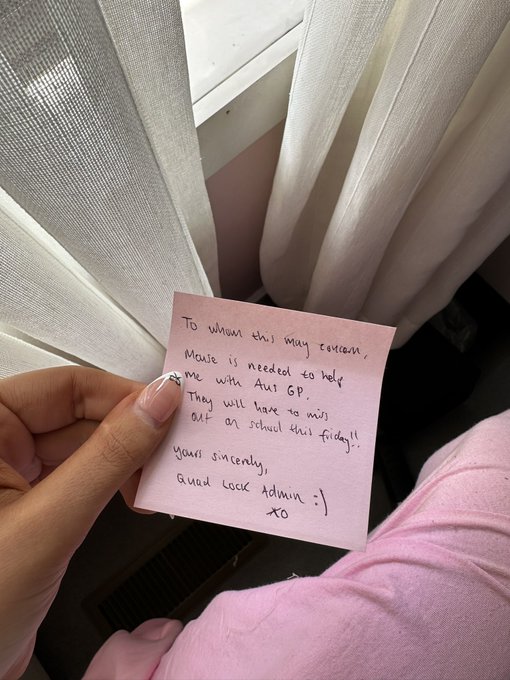 To whom this may concern,
Mouse is needed to help
me with Aus GP.
They will have to miss
out on school this friday!!
yours sincerely,
Quad Lock Admin :)
XO